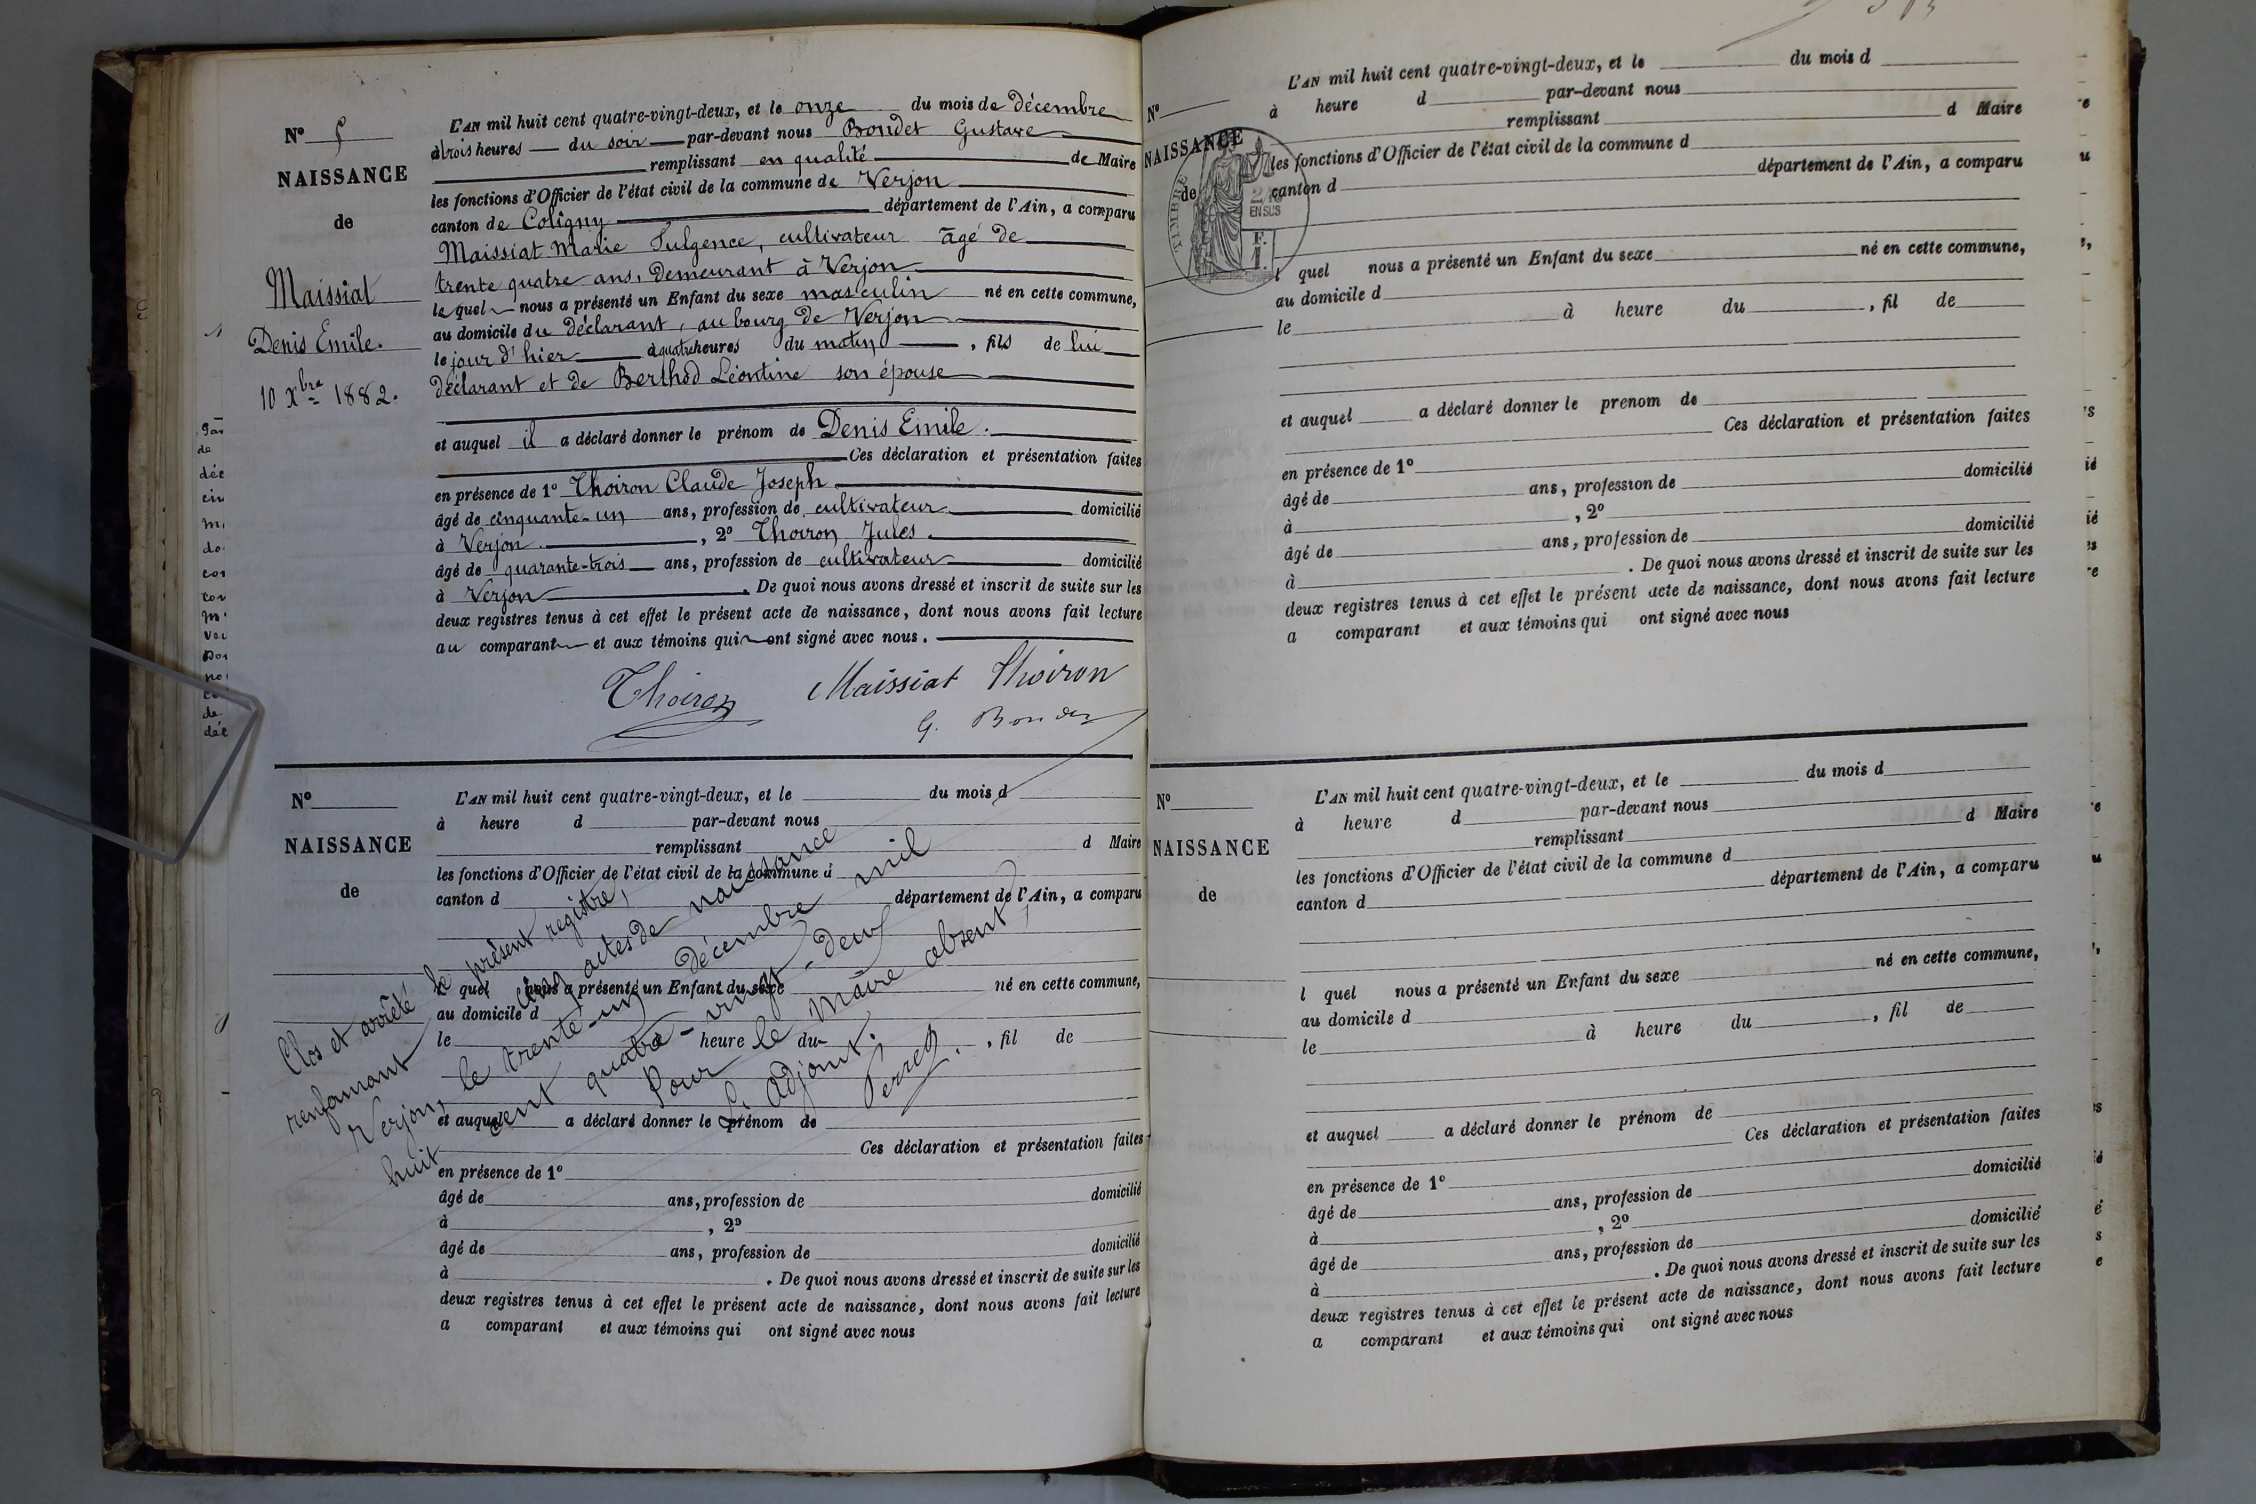 N° 5
NAISSANCE
de
Maissiat
Denis Emile.
10 Xbre 1882.
L'AN mil huit cent quatre-vingt-deux, et le onze du mois de décembre
à trois heures du soir par-devant nous Bondet Gustave
remplissant en qualité de Maire
les fonctions d'Officier de l'état civil de la commune de Verjon
canton de Coligny département de l'Ain, a comparu
Maissiat Marie Fulgence, cultivateur âgé de
trente quatre ans, demeurant à Verjon
lequel nous a présenté un Enfant du sexe masculin né en cette commune,
au domicile du déclarant, au bourg de Verjon
le jour d'hier à quatre heures du matin, fils de lui
déclarant et de Berthod Léontine son épouse
et auquel il a déclaré donner le prénom de Denis Emile.
Ces déclaration et présentation faites
en présence de 1° Thoiron Claude Joseph
âgé de cinquante-un ans, profession de cultivateur domicilié
à Verjon, 2° Thoiron Jules.
âgé de quarante-trois ans, profession de cultivateur domicilié
à Verjon. De quoi nous avons dressé et inscrit de suite sur les
deux registres tenus à cet effet le présent acte de naissance, dont nous avons fait lecture
au comparant et aux témoins qui ont signé avec nous.
Thoiron Maissiat Thoiron
G. Bondet
N°
NAISSANCE
de
L'AN mil huit cent quatre-vingt-deux, et le du mois d
à heure d par-devant nous
remplissant d Maire
les fonctions d'Officier de l'état civil de la commune d
canton d département de l'Ain, a comparu
l quel nous a présenté un Enfant du sexe né en cette commune,
au domicile d
le à heure du, fil de
et auquel a déclaré donner le prénom de
Ces déclaration et présentation faites
en présence de 1°
âgé de ans, profession de domicilié
à, 2°
âgé de ans, profession de domicilié
à. De quoi nous avons dressé et inscrit de suite sur les
deux registres tenus à cet effet le présent acte de naissance, dont nous avons fait lecture
a comparant et aux témoins qui ont signé avec nous
Clos et arrêté le présent registre,
renfamant cinq actes de naissance
Verjon, le trente-un décembre mil
huit cent quatre-vingt-deux
Pour le Maire absent,
L'Adjoint.
Perret.
N°
NAISSANCE
de
TIMBRE
2/10
EN SUS
F.
1.
L'AN mil huit cent quatre-vingt-deux, et le du mois d
à heure d par-devant nous
remplissant d Maire
les fonctions d'Officier de l'état civil de la commune d
canton d département de l'Ain, a comparu
l quel nous a présenté un Enfant du sexe né en cette commune,
au domicile d
le à heure du, fil de
et auquel a déclaré donner le prenom de
Ces déclaration et présentation faites
en présence de 1°
âgé de ans, profession de domicilié
à, 2°
âgé de ans, profession de domicilié
à. De quoi nous avons dressé et inscrit de suite sur les
deux registres tenus à cet effet le présent acte de naissance, dont nous avons fait lecture
a comparant et aux témoins qui ont signé avec nous
N°
NAISSANCE
de
L'AN mil huit cent quatre-vingt-deux, et le du mois d
à heure d par-devant nous
remplissant d Maire
les fonctions d'Officier de l'état civil de la commune d
canton d département de l'Ain, a comparu
l quel nous a présenté un Enfant du sexe né en cette commune,
au domicile d
le à heure du, fil de
et auquel a déclaré donner le prénom de
Ces déclaration et présentation faites
en présence de 1°
âgé de ans, profession de domicilié
à, 2°
âgé de ans, profession de domicilié
à. De quoi nous avons dressé et inscrit de suite sur les
deux registres tenus à cet effet le présent acte de naissance, dont nous avons fait lecture
a comparant et aux témoins qui ont signé avec nous